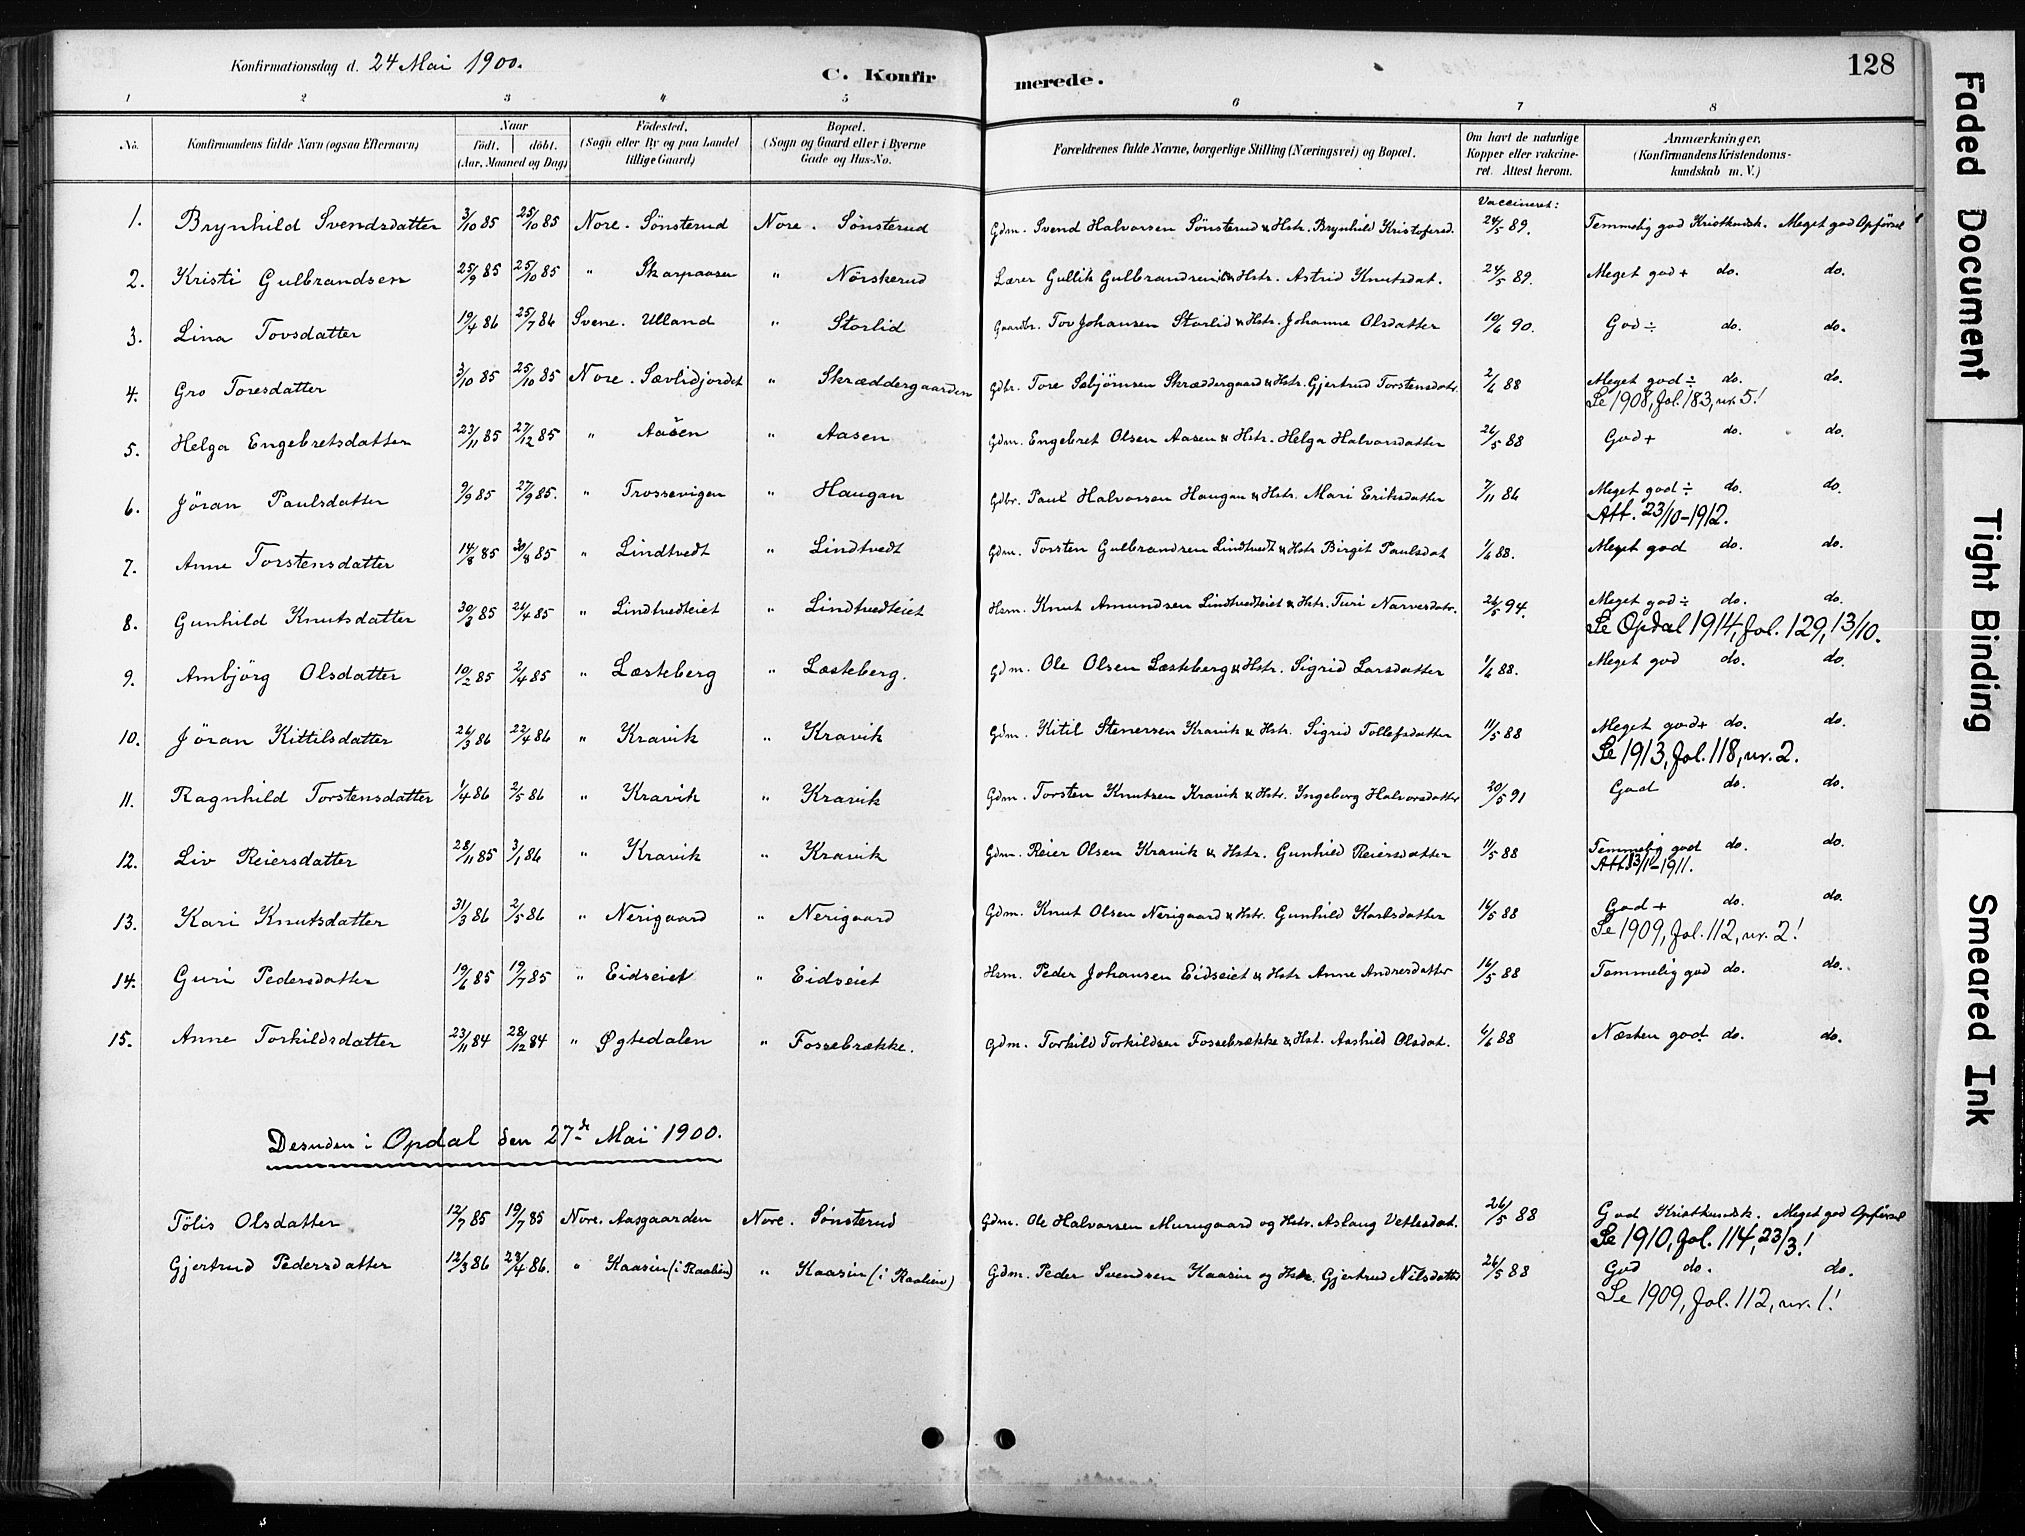 Konfirmationsdag d. 24 Mai 1900.
C. Konfirmerede.
128
1 2 3 4 5 6 7 8
No. Konfirmandens fulde Navn (ogsaa Efternavn) Naar födt. döbt. (Aar, Maaned og Dag) Födested. (Sogn eller By og paa Landet tillige Gaard) Bopæl. (Sogn og Gaard eller i Byerne Gade og Hus-No. Forældrenes fulde Navne, borgerlige Stilling (Næringsvei) og Bopæl. Om havt de naturlige Kopper eller vakcineret. Attest herom. Anmærkninger, (Konfirmandens Kristendomskundskab m. V.)
Vaccineret:
1. Brynhild Svendsdatter 3/10 85 25/10 85 Nore. Sønsterud Nore. Sønsterud Gdm. Svend Halvorsen Sønsterud & Hstr. Brynhild Kristofersd. 24/5 89. Temmelig god Kristkundsk. Meget god Opförsel
2. Kristi Gulbrandsen 25/9 85 25/10 85 " Skarpaasen " Nörskerud Lærer Gullik Gulbrandsen & Hstr. Astrid Knutsdat. 24/5 89. Meget god + do. do.
3. Lina Tovsdatter 19/4 86 25/7 86 Svene. Ulland " Storlid Gaardbr. Tov Johansen Storlid & Hstr. Johanne Olsdatter 10/6 90. God ÷ do. do.
4. Gro Toresdatter 3/10 85 25/10 85 Nore. Sævlidjordet " Skræddergaarden Gdbr. Tore Sebjörnsen Skræddergaard & Hstr. Gjertrud Torstensdatr. 2/6 88 Meget god ÷ do. do.
Se 1908, fol. 183, nr. 5!
5. Helga Engebretsdatter 23/11 85 27/12 85 " Aasen " Aasen Gdm. Engebret Olsen Aasen & Hstr. Helga Halvorsdatter 26/5 88 God + do. do.
6. Jöran Paulsdatter 9/9 85 27/9 85. " Trossevigen " Haugan Gdbr. Paul Halvorsen Haugan & Hstr. Mari Eriksdatter 7/11 86 Meget god ÷ do. do.
Att. 23/10-1912.
7. Anne Torstensdatter 14/8 85 30/8 85 " Lindtvedt " Lindtvedt Gdm. Torsten Gulbrandsen Lindtvedt & Hstr Birgit Paulsdat 1/6 88. Meget god do. do.
8. Gunhild Knutsdatter 30/3 85 26/4 85 " Lindtvedteiet " Lindtvedteiet Hsm. Knut Amundsen Lindtvedteiet & Hstr. Turi Narvesdatr. 26/5 94. Meget god ÷ do. do.
Se Opdal 1914, fol. 129, 13/10.
9. Ambjörg Olsdatter 10/2 85 2/4 85 " Læsteberg " Læsteberg. Gdm. Ole Olsen Læsteberg & Hstr. Sigrid Larsdatter 1/6 88. Meget god do. do.
10. Jöran Kittilsdatter 26/3 86 22/4 86 " Kravik " Kravik Gdm. Kitil Stenersen Kravik & Hstr. Sigrid Tollefsdatter 11/5 88 Meget god + do. do.
Se 1913, fol. 118, nr. 2.
11. Ragnhild Torstensdatter 1/4 86 2/5 86 " Kravik " Kravik Gdm. Torsten Knutsen Kravik & Hstr. Ingeborg Halvorsdatter 20/5 91 God do. do.
12. Liv Reiersdatter 28/11 85 3/1 86 " Kravik " Kravik Gdm. Reier Olsen Kravik & Hstr. Gunhild Reiersdatter 11/5 88 Temmelig god do. do.
Att. 13/11-1911.
13. Kari Knutsdatter 31/3 86 2/5 86 " Nerigaard " Nerigaard Gdm. Knut Olsen Nerigaard & Hstr. Gunhild Karlsdatter 14/5 88 God + do. do.
Se 1909, fol. 112, nr. 2!
14. Guri Pedersdatter 19/6 85 19/7 85 " Eidseiet " Eidseiet Hsm. Peder Johansen Eidseiet & Hstr Anne Andersdatter 16/5 88 Temmelig god do. do.
15. Anne Torkildsdatter 23/11 84 28/12 84 " Øgtedalen " Fossebrække. Gdm. Torkild Torkildsen Fossebrække & Hst. Aashild Olsdat. 6/6 88 Næsten god do. do.
Desuden i Opdal den 27de Mai 1900.
Tölis Olsdatter 12/7 85 19/7 85 Nore. Aasgaarden Nore. Sønsterud Gdm. Ole Halvorsen Murugaard og Hstr. Aslaug Vetlesdat. 26/5 88 God Kristkundsk. Meget god Opförsel
Se 1910, fol. 114, 23/3!
Gjertrud Pedersdatter 12/3 86 23/4 86. " Kaasin (i Raalien) " Kaasin (i Raalien) Gdm. Peder Svendsen Kaasin og Hstr. Gjertrud Nilsdatter 26/5 88 God do. do.
Se 1909, fol. 112, nr. 1!
Faded Document
Tight Binding
Smeared Ink